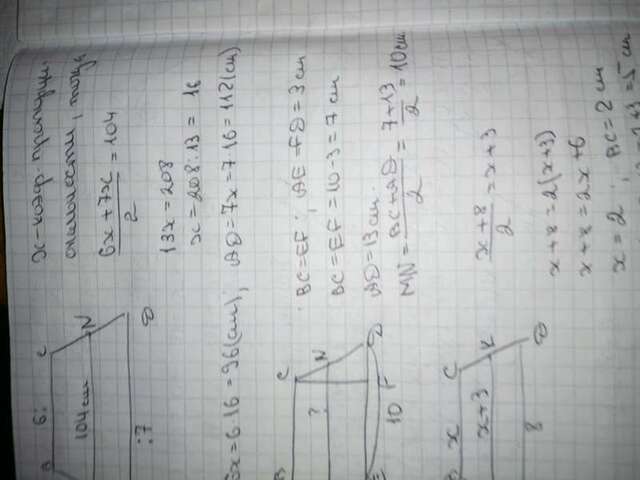 B 6: C
104 см N
:7 D
x-коэф. пропорци-
ональности, тогда
6x + 7x / 2 = 104
13x = 208
x = 208 : 13 = 16
6x = 6·16 = 96(см); AD = 7x = 7·16 = 112(см)
B C
? N
E 10 F D
BC = EF; AE = FD = 3 см
BC = EF = 10 - 3 = 7 см
AD = 13 см.
MN = BC + AD / 2 = 7 + 13 / 2 = 10 см
B x C
x+3 K
8 D
x + 8 / 2 = x + 3
x + 8 = 2(x+3)
x + 8 = 2x + 6
x = 2; BC = 2 см
+3 = 5 см